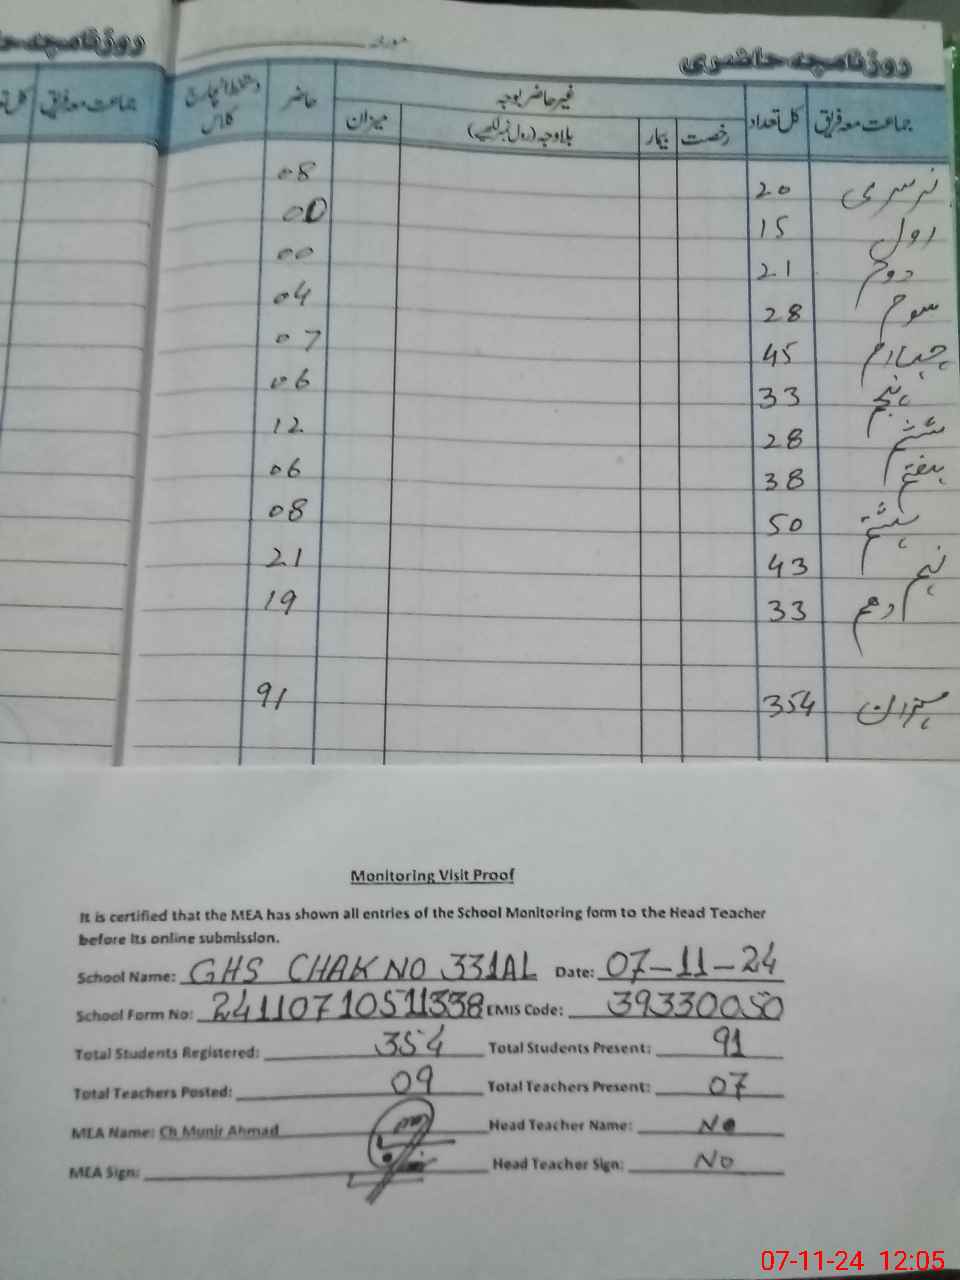 روزنامچہ حاضری
مورخہ
جماعت معہ فریق کل تعداد غیر حاضر بوجہ حاضر دستخط انچارج کلاس
رخصت بیمار بلاوجہ (رول نمبر لکھیے) میزان
جماعت معہ فریق
نرسری 20 08
اول 15 00
دوم 21 00
سوم 28 04
چہارم 45 07
پنجم 33 06
ششم 28 12
ہفتم 38 06
ہشتم 50 08
نہم 43 21
دہم 33 19
میزان 354 91
Monitoring Visit Proof
It is certified that the MEA has shown all entries of the School Monitoring form to the Head Teacher
before its online submission.
School Name: GHS CHAK NO 331AL Date: 07-11-24
School Form No: 24110710511338 EMIS Code: 39330050
Total Students Registered: 354 Total Students Present: 91
Total Teachers Posted: 09 Total Teachers Present: 07
MEA Name: Ch Munir Ahmad Head Teacher Name: No
MEA Sign: Head Teacher Sign: No
07-11-24 12:05